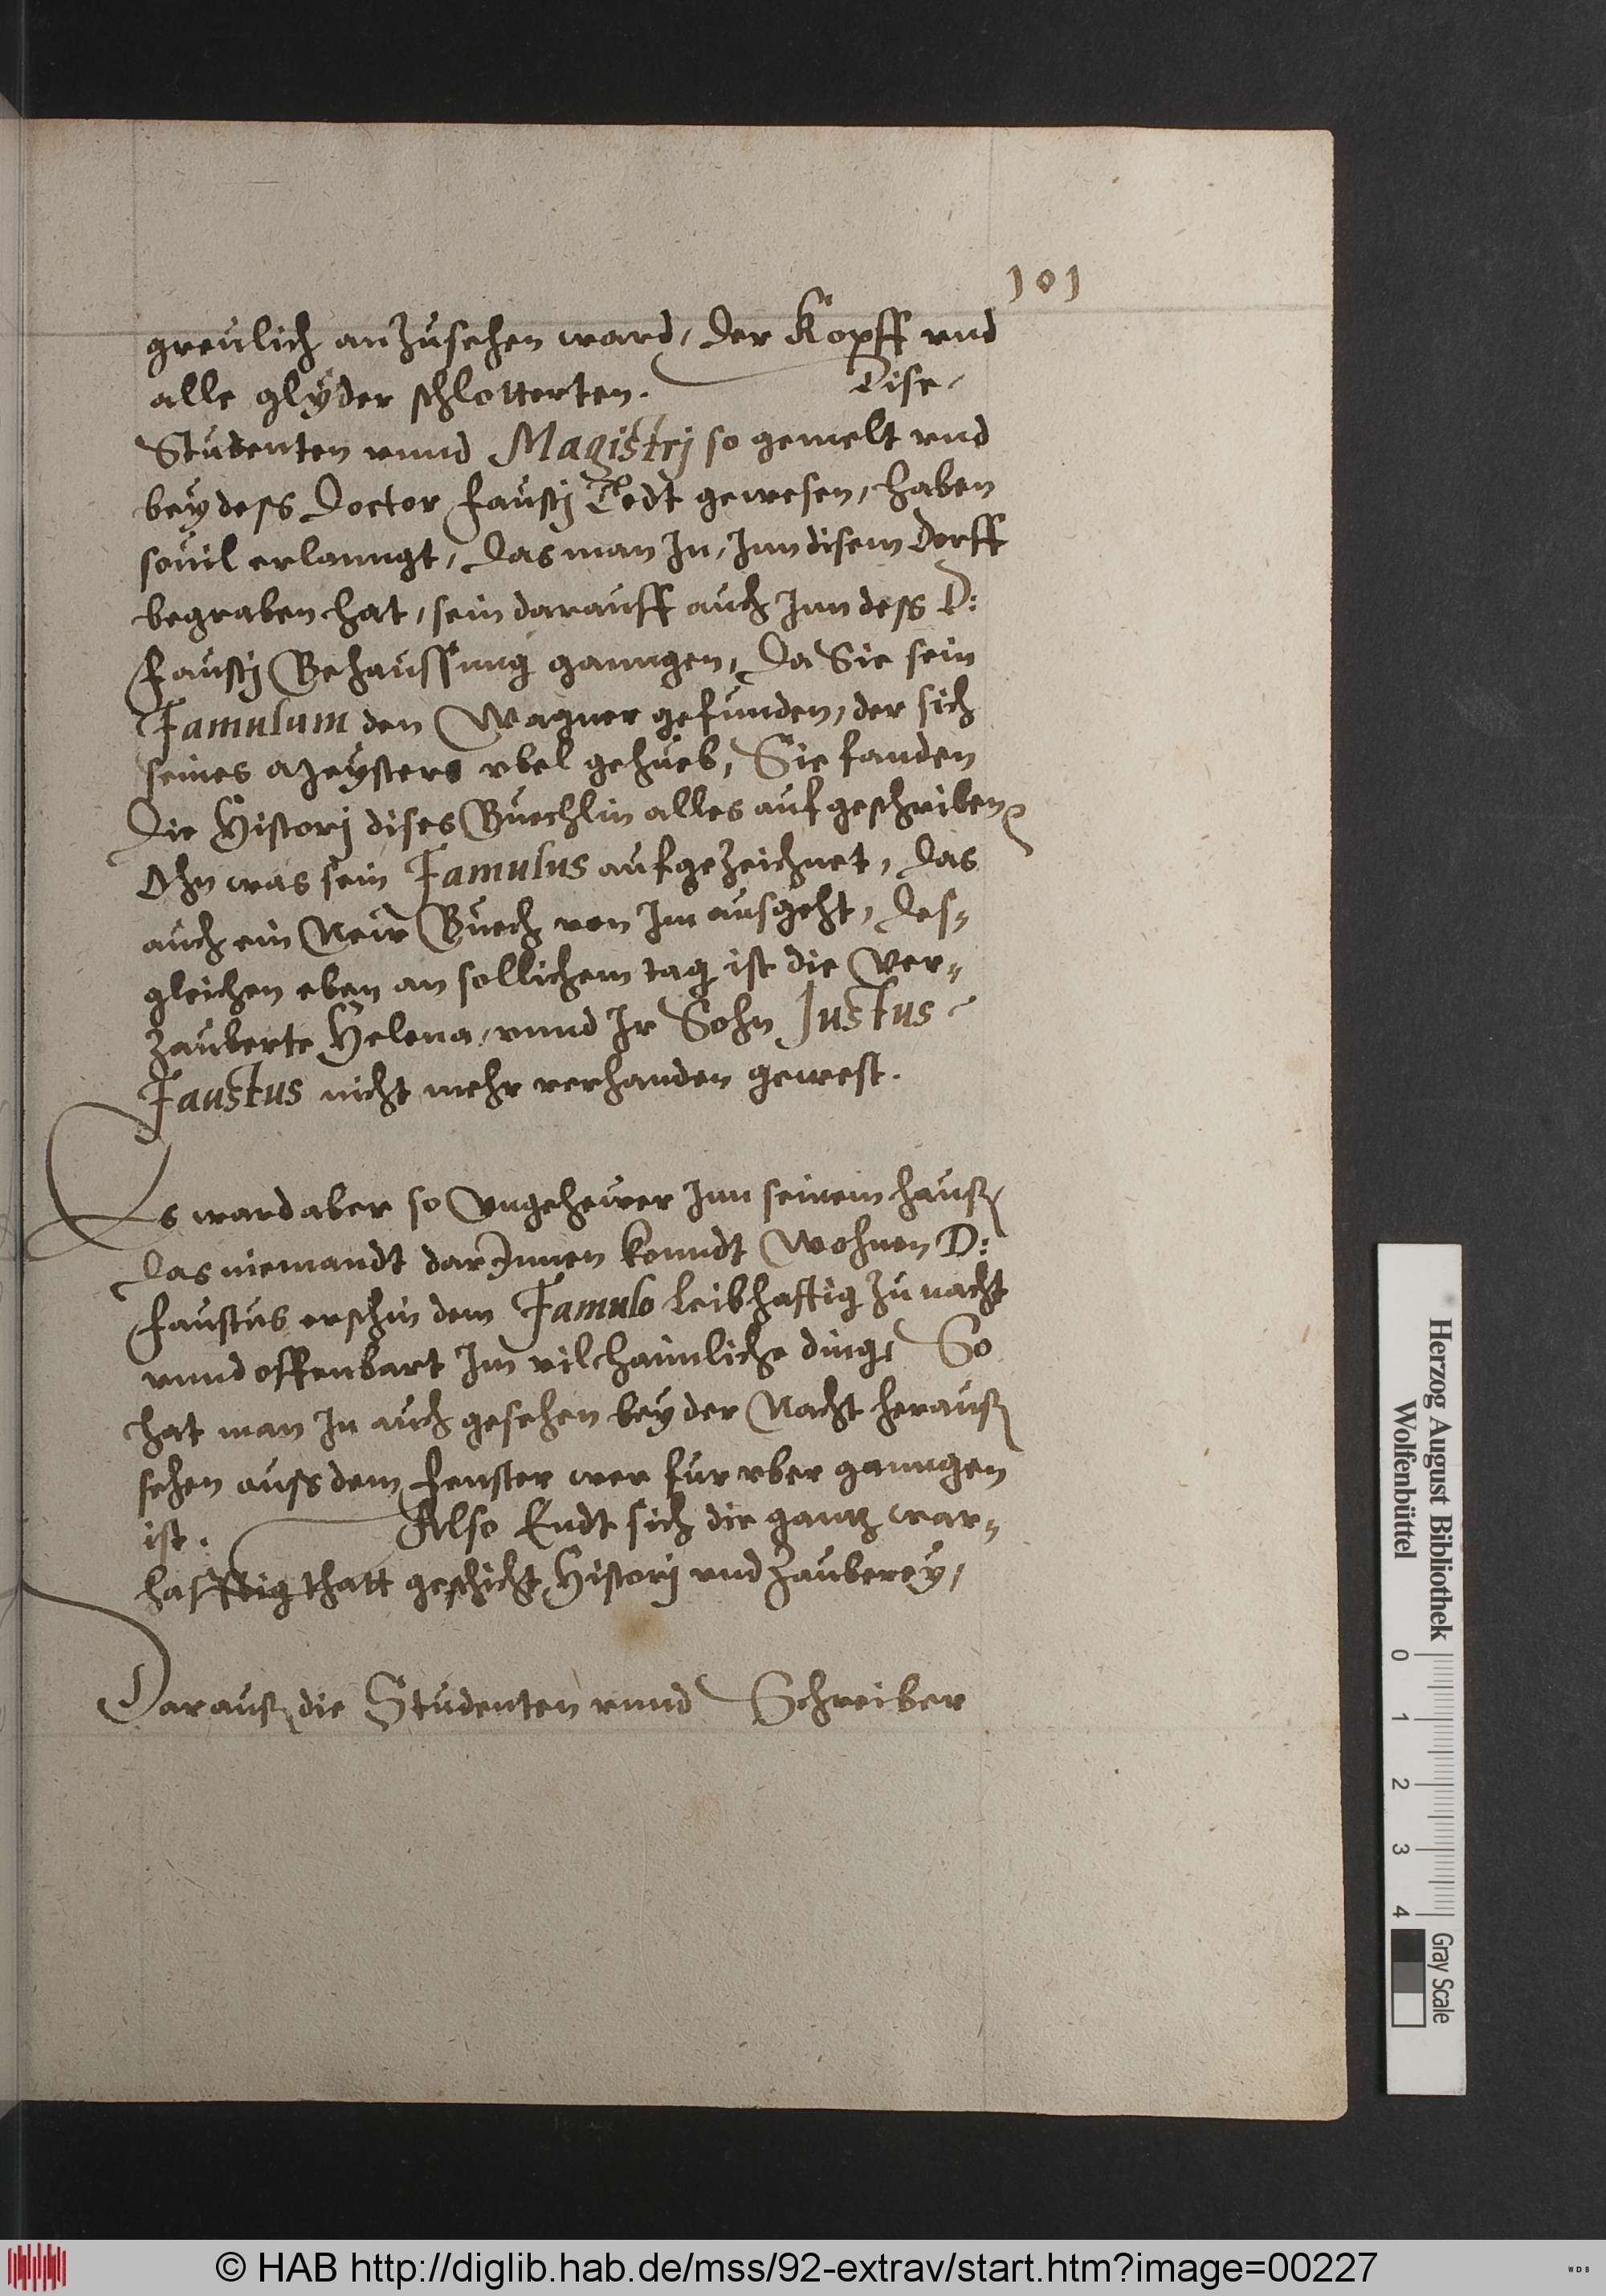 101
greulich anzusehen ward, Der Kopff vnd
alle glyder schlotterten. Dise
Studenten vnnd Magistrj so gemelt vnd
bey dess Doctor Faustj Todt gewesen, haben
souil erlanngt, Das man In, Inn disem Dorff
begraben hat, sein darauff auch Inn dess D:
Faustj Behaussung ganngen, Da Sie sein
Famulum den Wagner gefunden, der sich
seines Meysters vbel gehueb, Sie fanden
Die Historj dises Buechlin alles aufgeschriben
Ohn was sein Famulus aufgezeichnet, Das
auch ein New Buech von Im ausgeht, Des-
gleichen eben an sollichem tag ist die Ver-
zauberte Helena, vnnd Ir Sohn Justus
Faustus nicht mehr verhanden gewest.
Es ward aber so Vngehewer Inn seinem hauß
Das niemandt darInnen konndt Wohnen D:
Faustus erschin dem Famulo leibhafftig zu nacht
vnnd offenbart Im vil haimliche ding, So
hat man In auch gesehen bey der Nacht herauß
sehen auss dem Fenster wer fur vber ganngen
ist. Also Endt sich die gantz war-
hafftig thatt geschicht Historj vnd Zauberey,
Darauß die Studenten vnnd Schreiber
Herzog August Bibliothek
Wolfenbüttel
0 1 2 3 4
Gray Scale
© HAB http://diglib.hab.de/mss/92-extrav/start.htm?image=00227
WDB